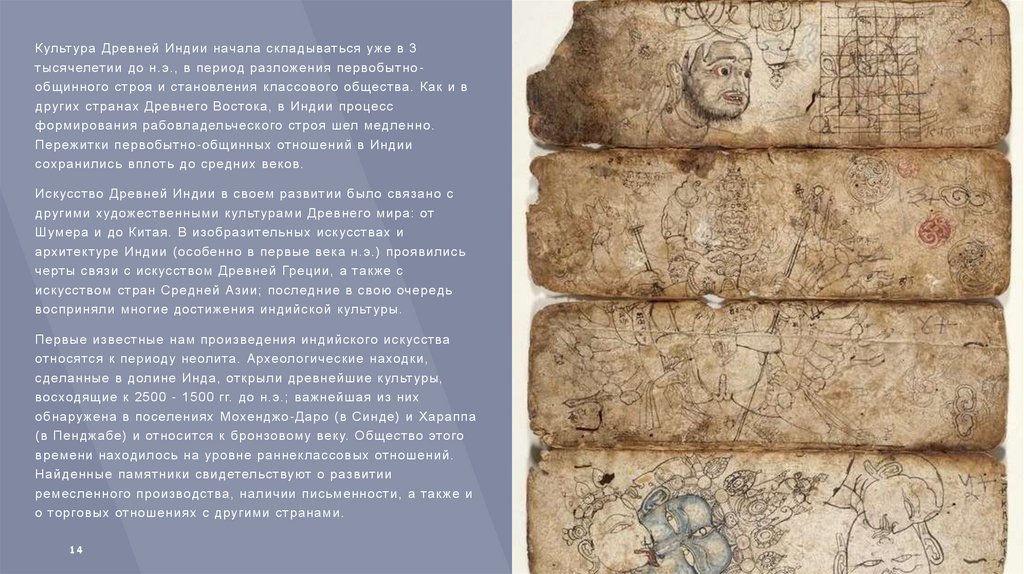 Культура Древней Индии начала складываться уже в 3
тысячелетии до н.э., в период разложения первобытно-
общинного строя и становления классового общества. Как и в
других странах Древнего Востока, в Индии процесс
формирования рабовладельческого строя шел медленно.
Пережитки первобытно-общинных отношений в Индии
сохранились вплоть до средних веков.
Искусство Древней Индии в своем развитии было связано с
другими художественными культурами Древнего мира: от
Шумера и до Китая. В изобразительных искусствах и
архитектуре Индии (особенно в первые века н.э.) проявились
черты связи с искусством Древней Греции, а также с
искусством стран Средней Азии; последние в свою очередь
восприняли многие достижения индийской культуры.
Первые известные нам произведения индийского искусства
относятся к периоду неолита. Археологические находки,
сделанные в долине Инда, открыли древнейшие культуры,
восходящие к 2500 - 1500 гг. до н.э.; важнейшая из них
обнаружена в поселениях Мохенджо-Даро (в Синде) и Хараппа
(в Пенджабе) и относится к бронзовому веку. Общество этого
времени находилось на уровне раннеклассовых отношений.
Найденные памятники свидетельствуют о развитии
ремесленного производства, наличии письменности, а также и
о торговых отношениях с другими странами.
14